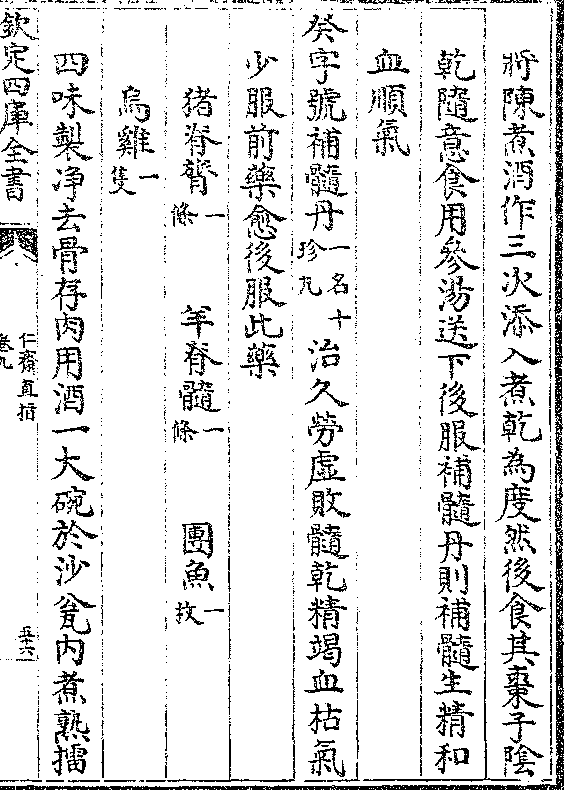 將陳煮酒作三次添入煮乾為度然後食其棗子陰
乾隨意食用參湯送下後服補髓丹則補髓生精和
血順氣
癸字號補髓丹一名十珍丸治久勞虛敗髓乾精竭血枯氣
少服前藥愈後服此藥
猪脊膂一條 羊脊髓一條 團魚一枚
烏雞一隻
四味製净去骨存肉用酒一大碗於沙瓮内煮熟擂
欽定四庫全書
仁齋直指
卷九
五十六